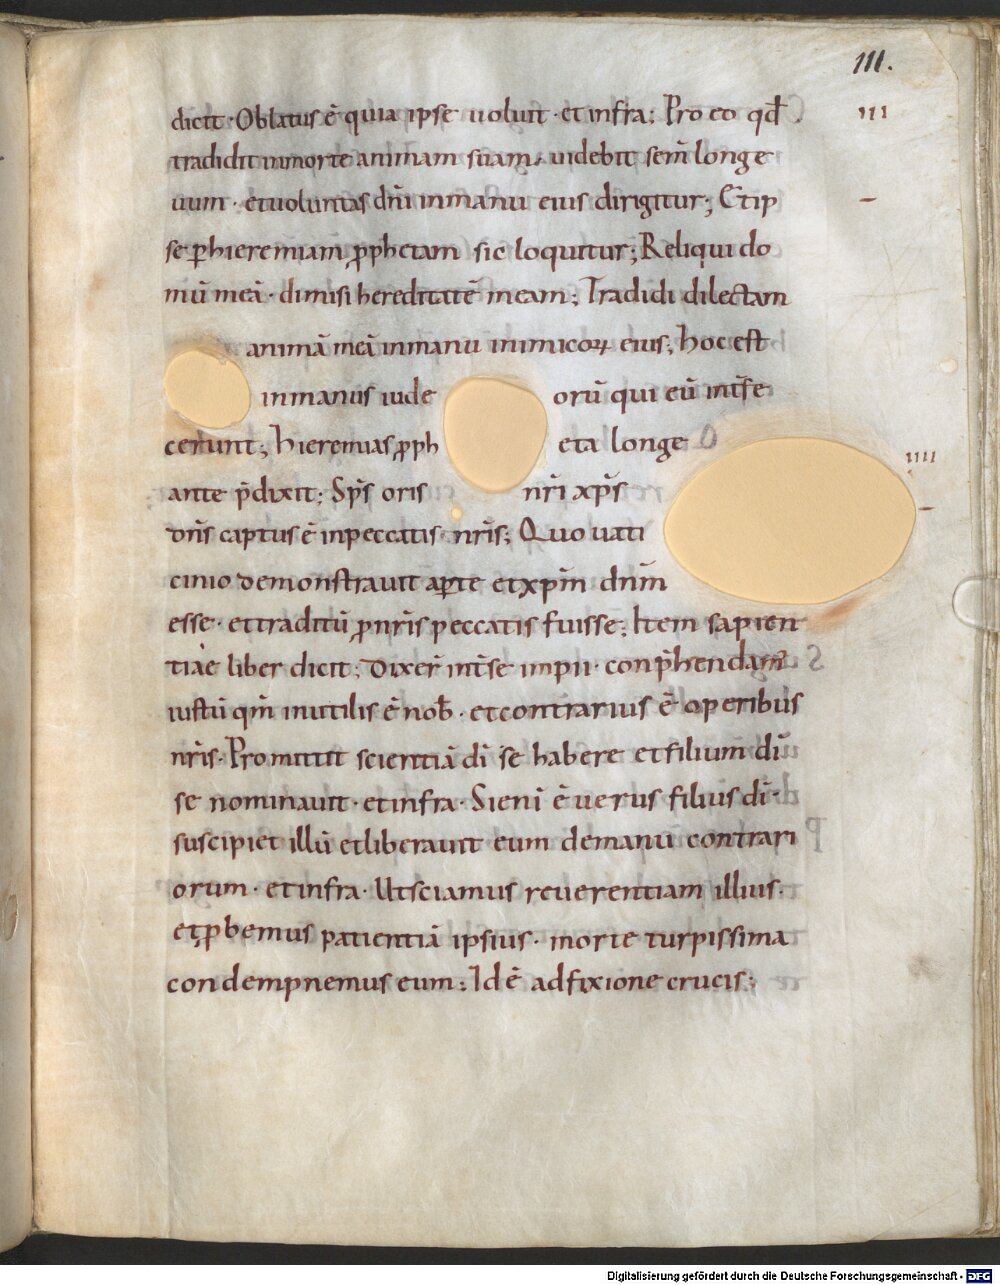 111.
dicit · Oblatus ē quia ipse uoluit · et infra; Pro eo qđ
III
tradidit inmorte animam suam, uidebit sem̄ longe
uum · et uoluntas dn̄i inmanu eius dirigitur; Et ip
se ꝑ hieremiam ꝓphetam sic loquitur; Reliqui do
mū meā · dimisi hereditatē meam; Tradidi dilectam
animā meā inmanu inimicoꝝ eius; hoc est
inmanus iude orū qui eū int̄se
cerunt; hieremias ꝓph eta longe
IIII
ante p̄dixit; Sp̄s oris nr̄i xp̄s
dn̄s captus ē inpeccatis nr̄is; Quo uati
cinio demonstrauit aꝑte et xp̄m dn̄m
esse · et traditū ꝓ nr̄is peccatis fuisse; Item sapien
tiae liber dicit; Dixer̄ int̄se impii · conp̄hendam᾿
iustū qm̄ inutilis ē nob̄ · et contrarius ē operibus
nr̄is · Promittit scientiā dī se habere et filium dī
se nominauit · et infra · Si enī ē uerus filius dī ·
suscipiet illū et liberauit eum demanu contrari
orum · et infra · Ut sciamus reuerentiam illius ·
et ꝓbemus patientiā ipsius · morte turpissima
condempnemus eum; Id ē adfixione crucis;
Digitalisierung gefördert durch die Deutsche Forschungsgemeinschaft - DFG